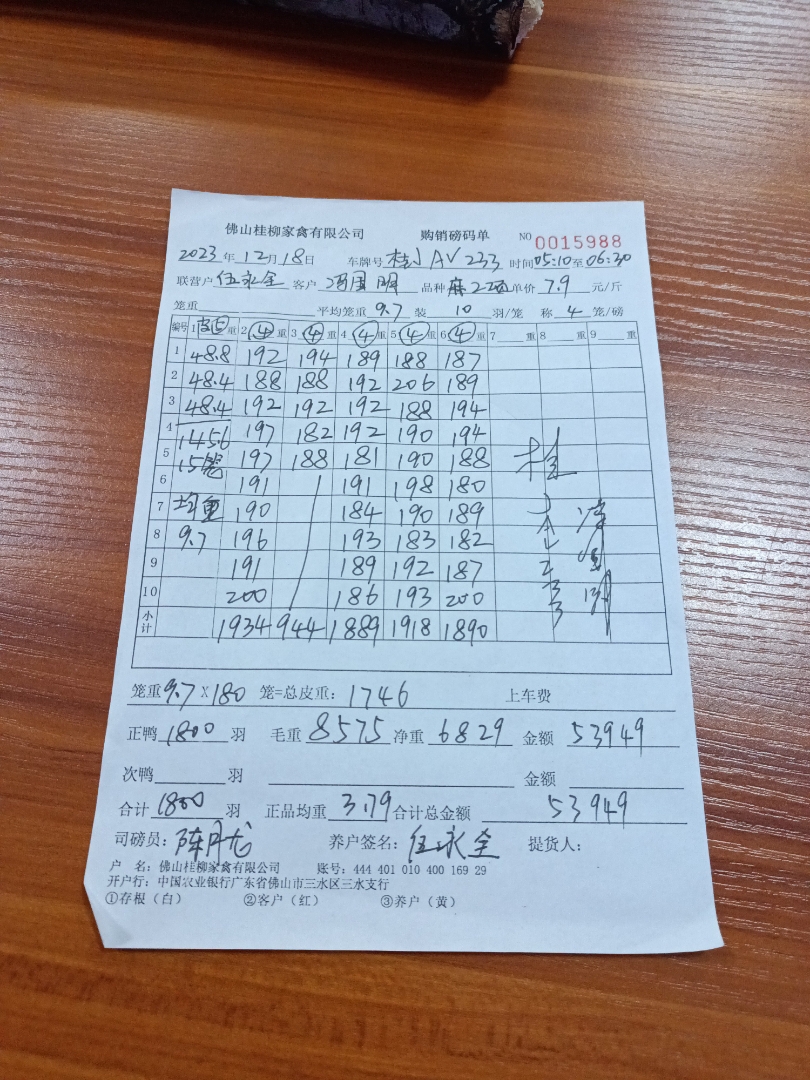 佛山桂柳家禽有限公司 购销磅码单 NO 0015988
2023年12月18日 车牌号 桂J AV 233 时间05:10至06:30
联营户 伍永全 客户 冯国明 品种 麻 单价 7.9 元/斤
笼重 平均笼重 9.7 装 10 羽/笼 称 4 笼/磅
编号 1 重 2 ④ 重 3 ④ 重 4 ④ 重 5 ④ 重 6 ④ 重 7 重 8 重 9 重
1 48.8 192 194 189 188 187
2 48.4 188 188 192 206 189
3 48.4 192 192 192 188 194
4 145.6 197 182 192 190 194
5 15笼 197 188 181 190 188
6 191 191 198 180
7 均重 190 184 190 189
8 9.7 196 193 183 182
9 191 189 192 187
10 200 186 193 200
小计 1934 944 1889 1918 1890
笼重9.7×180 笼=总皮重: 1746 上车费
正鸭 1800 羽 毛重 8575 净重 6829 金额 53949
次鸭 羽 金额
合计 1800 羽 正品均重 3.79 合计总金额 53949
司磅员: 陈丹龙 养户签名: 伍永全 提货人:
户 名: 佛山桂柳家禽有限公司 账号: 444 401 010 400 169 29
开户行: 中国农业银行广东省佛山市三水区三水支行
①存根（白） ②客户（红） ③养户（黄）